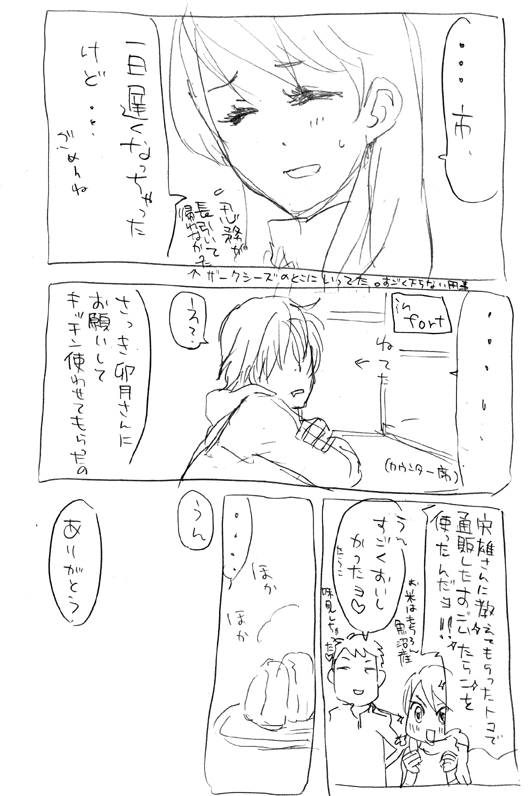 ・・・・市、
一日遅くなっちゃった
けど・・・
ごめんね
忍務が
長引いて
帰れなかった
ザークシーズのとこにいってた。すごく下らない用事
in
fort
・・・・・、
ねてた
え?
(カウンター席)
さっき卯月さんに
お願いして
キッチン使わせてもらったの
宗雄さんに教えてもらったトコで
通販したすごいたらこを
使ったんだヨ!!
お米はもちろん
魚沼産
うん
すごくおいし
かったヨ♡
たらこ
味見しちゃった♡
・・・・
ほか
ほか
うん
ありがとう